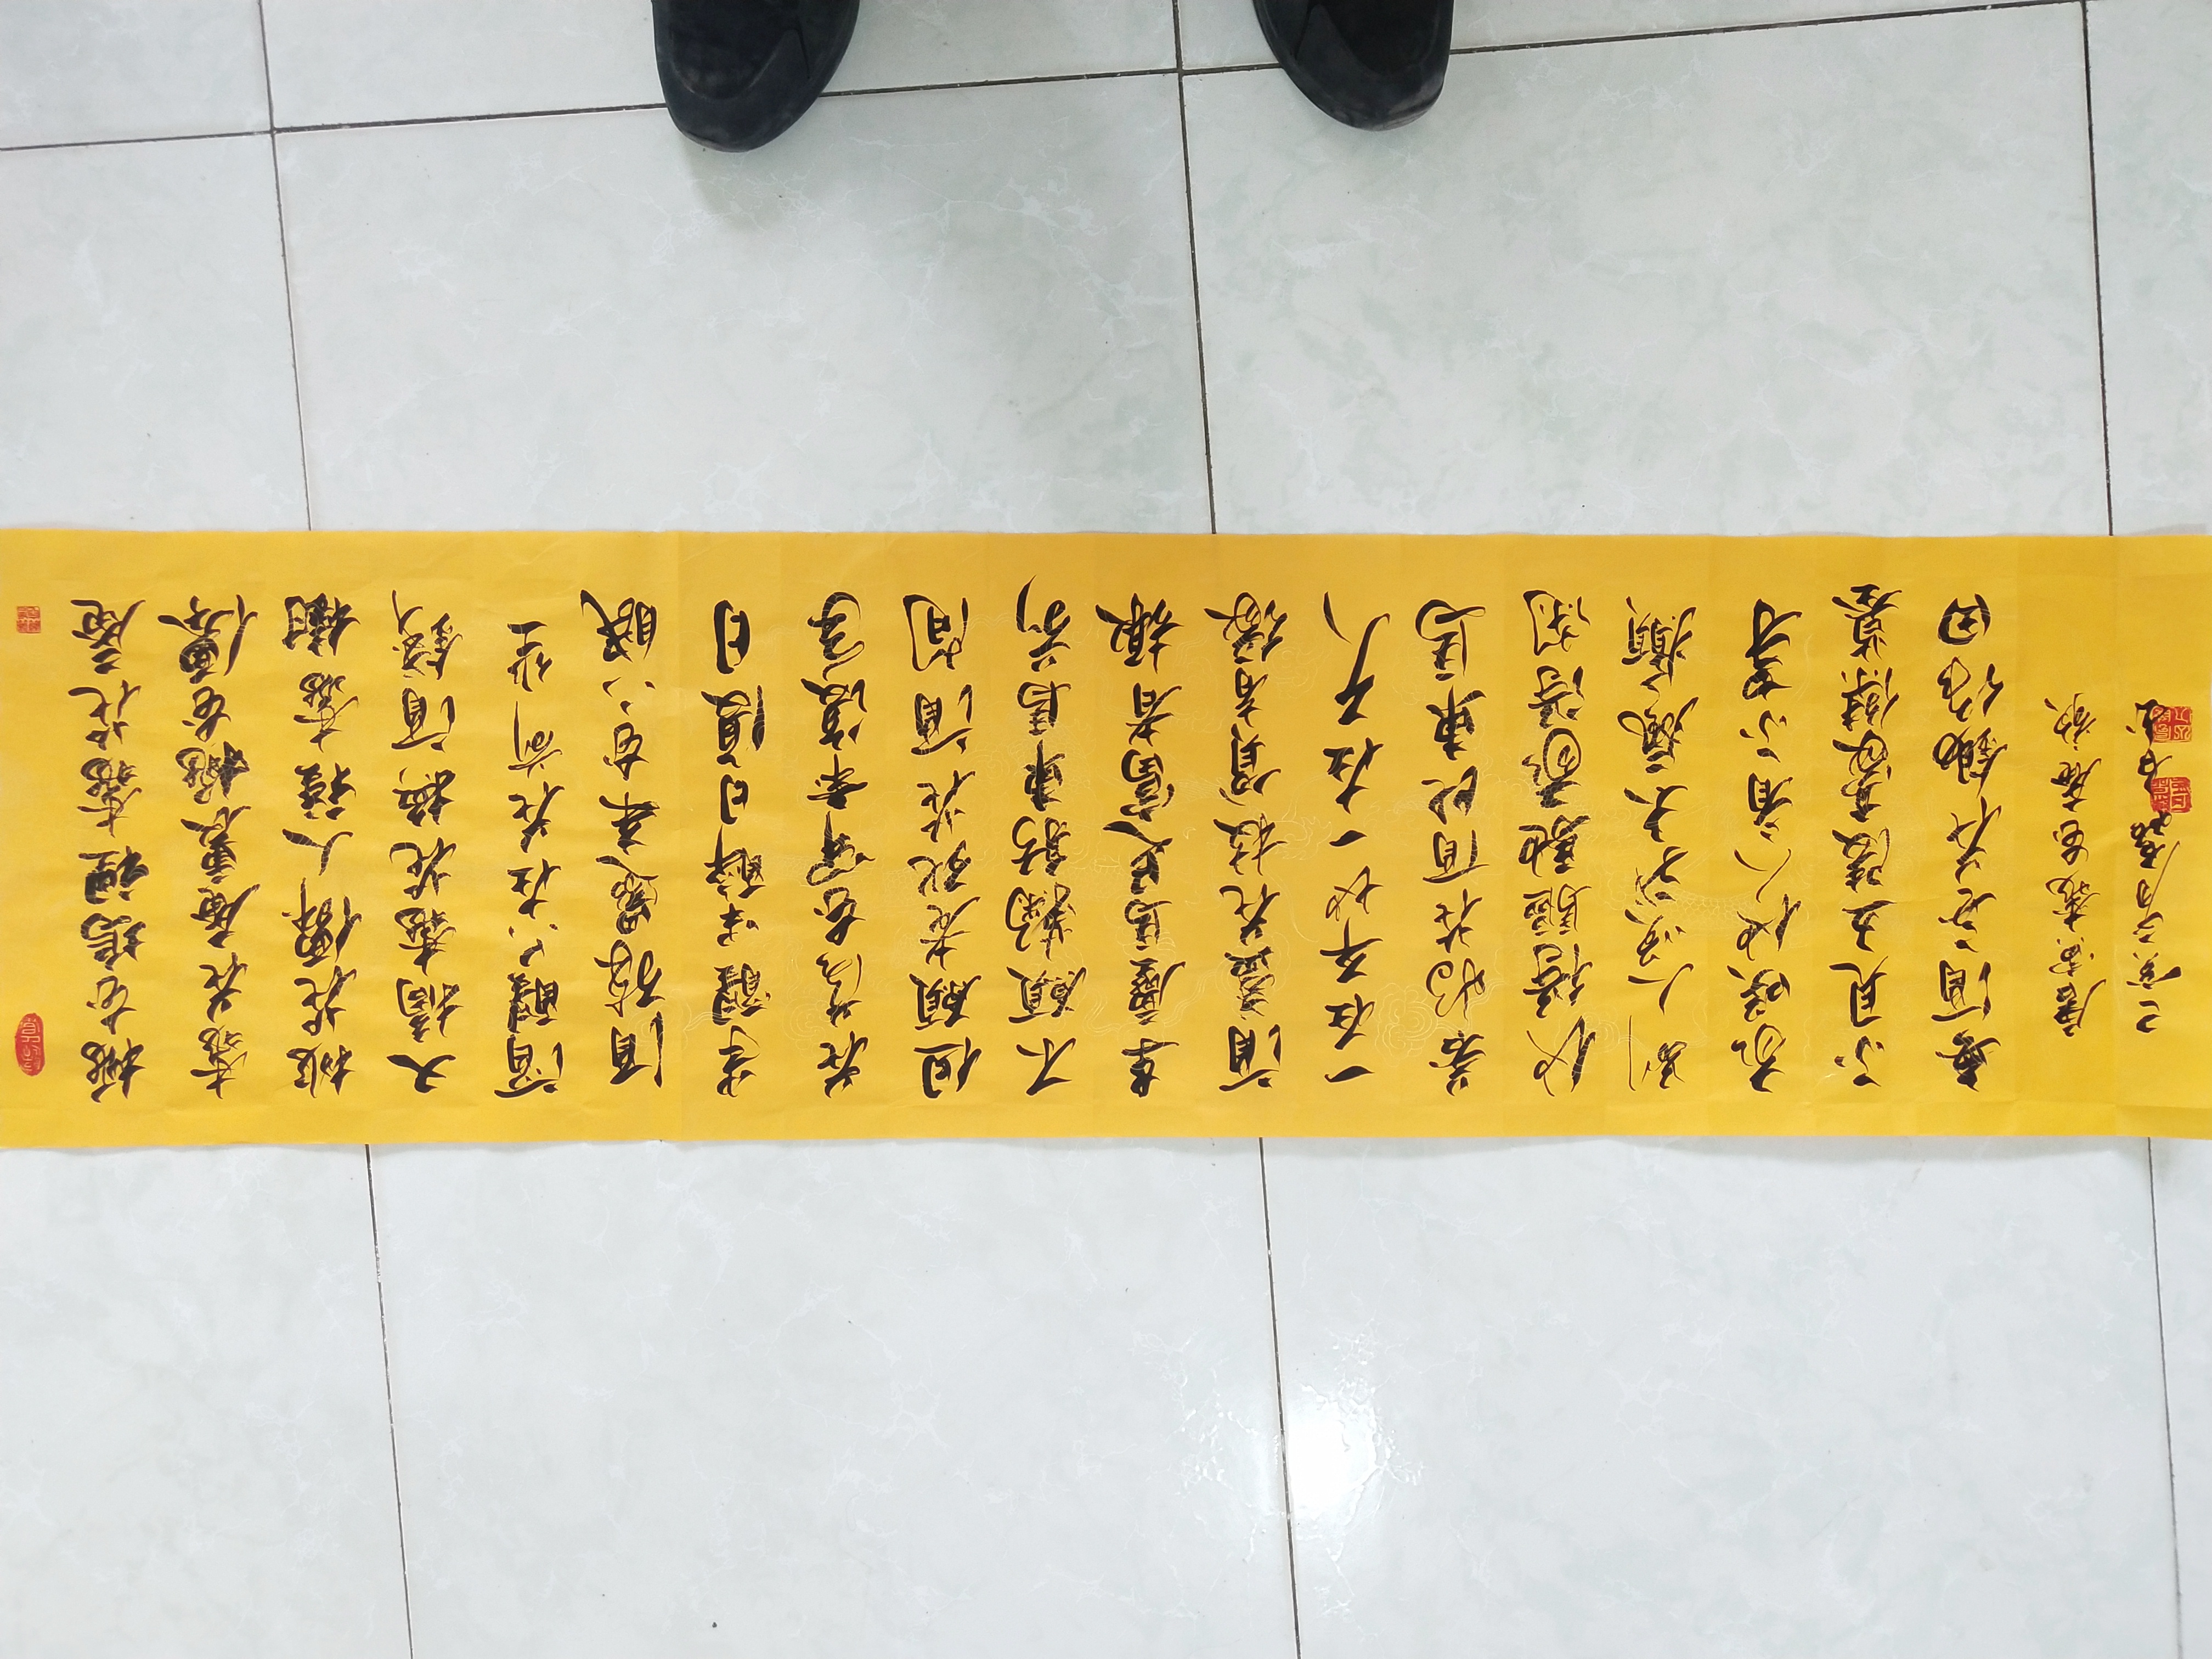 桃花塢裡桃花庵
桃花庵裏桃花僊
桃花僊人種桃樹
又摘桃花換酒錢
酒醒只在花前坐
酒醉還來花下眠
半醒半醉日復日
花落花開年復年
但願老死花酒間
不願鞠躬車馬前
車塵馬足富者趣
酒盞花枝貧者緣
一在平地一在天
若將花酒比車馬
他得驅馳我得閑
別人笑我太瘋癲
我笑他人看不穿
不見五陵豪傑墓
無酒無花鋤作田
唐寅桃花庵歌